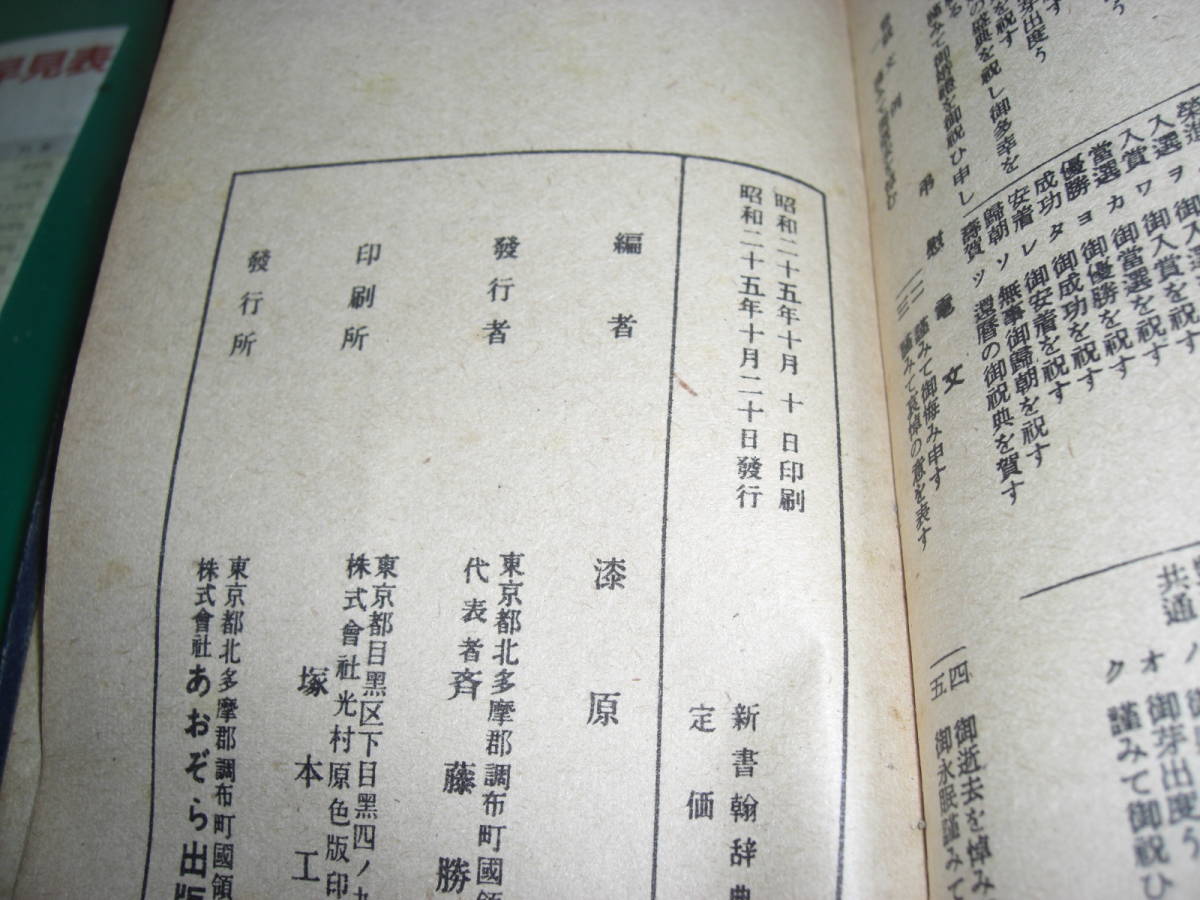 早見表
榮進
入選ヲ 御入選を祝す
入賞ワ 御入賞を祝す
當選カ 御當選を祝す
優勝ヨ 御優勝を祝す
成功タ 御成功を祝す
安着レ 御安着を祝す
歸朝ソ 無事御歸朝を祝す
壽賀ツ 還暦の御祝典を賀す
弔慰電文
二 謹みて御悔み申す
三 謹みて哀悼の意を表す
共通
オ 御芽出度う
ク 謹みて御祝ひ
四 御逝去を悼み
五 御永眠謹みて
昭和二十五年十月 十 日印刷
昭和二十五年十月二十日發行
新書翰辞典
定価
編者 漆原
發行者 東京都北多摩郡調布町國領
代表者 斉藤勝
印刷所 東京都目黒区下目黒四ノ九
株式會社光村原色版印
塚本工
發行所 東京都北多摩郡調布町國領
株式會社 あおぞら出版